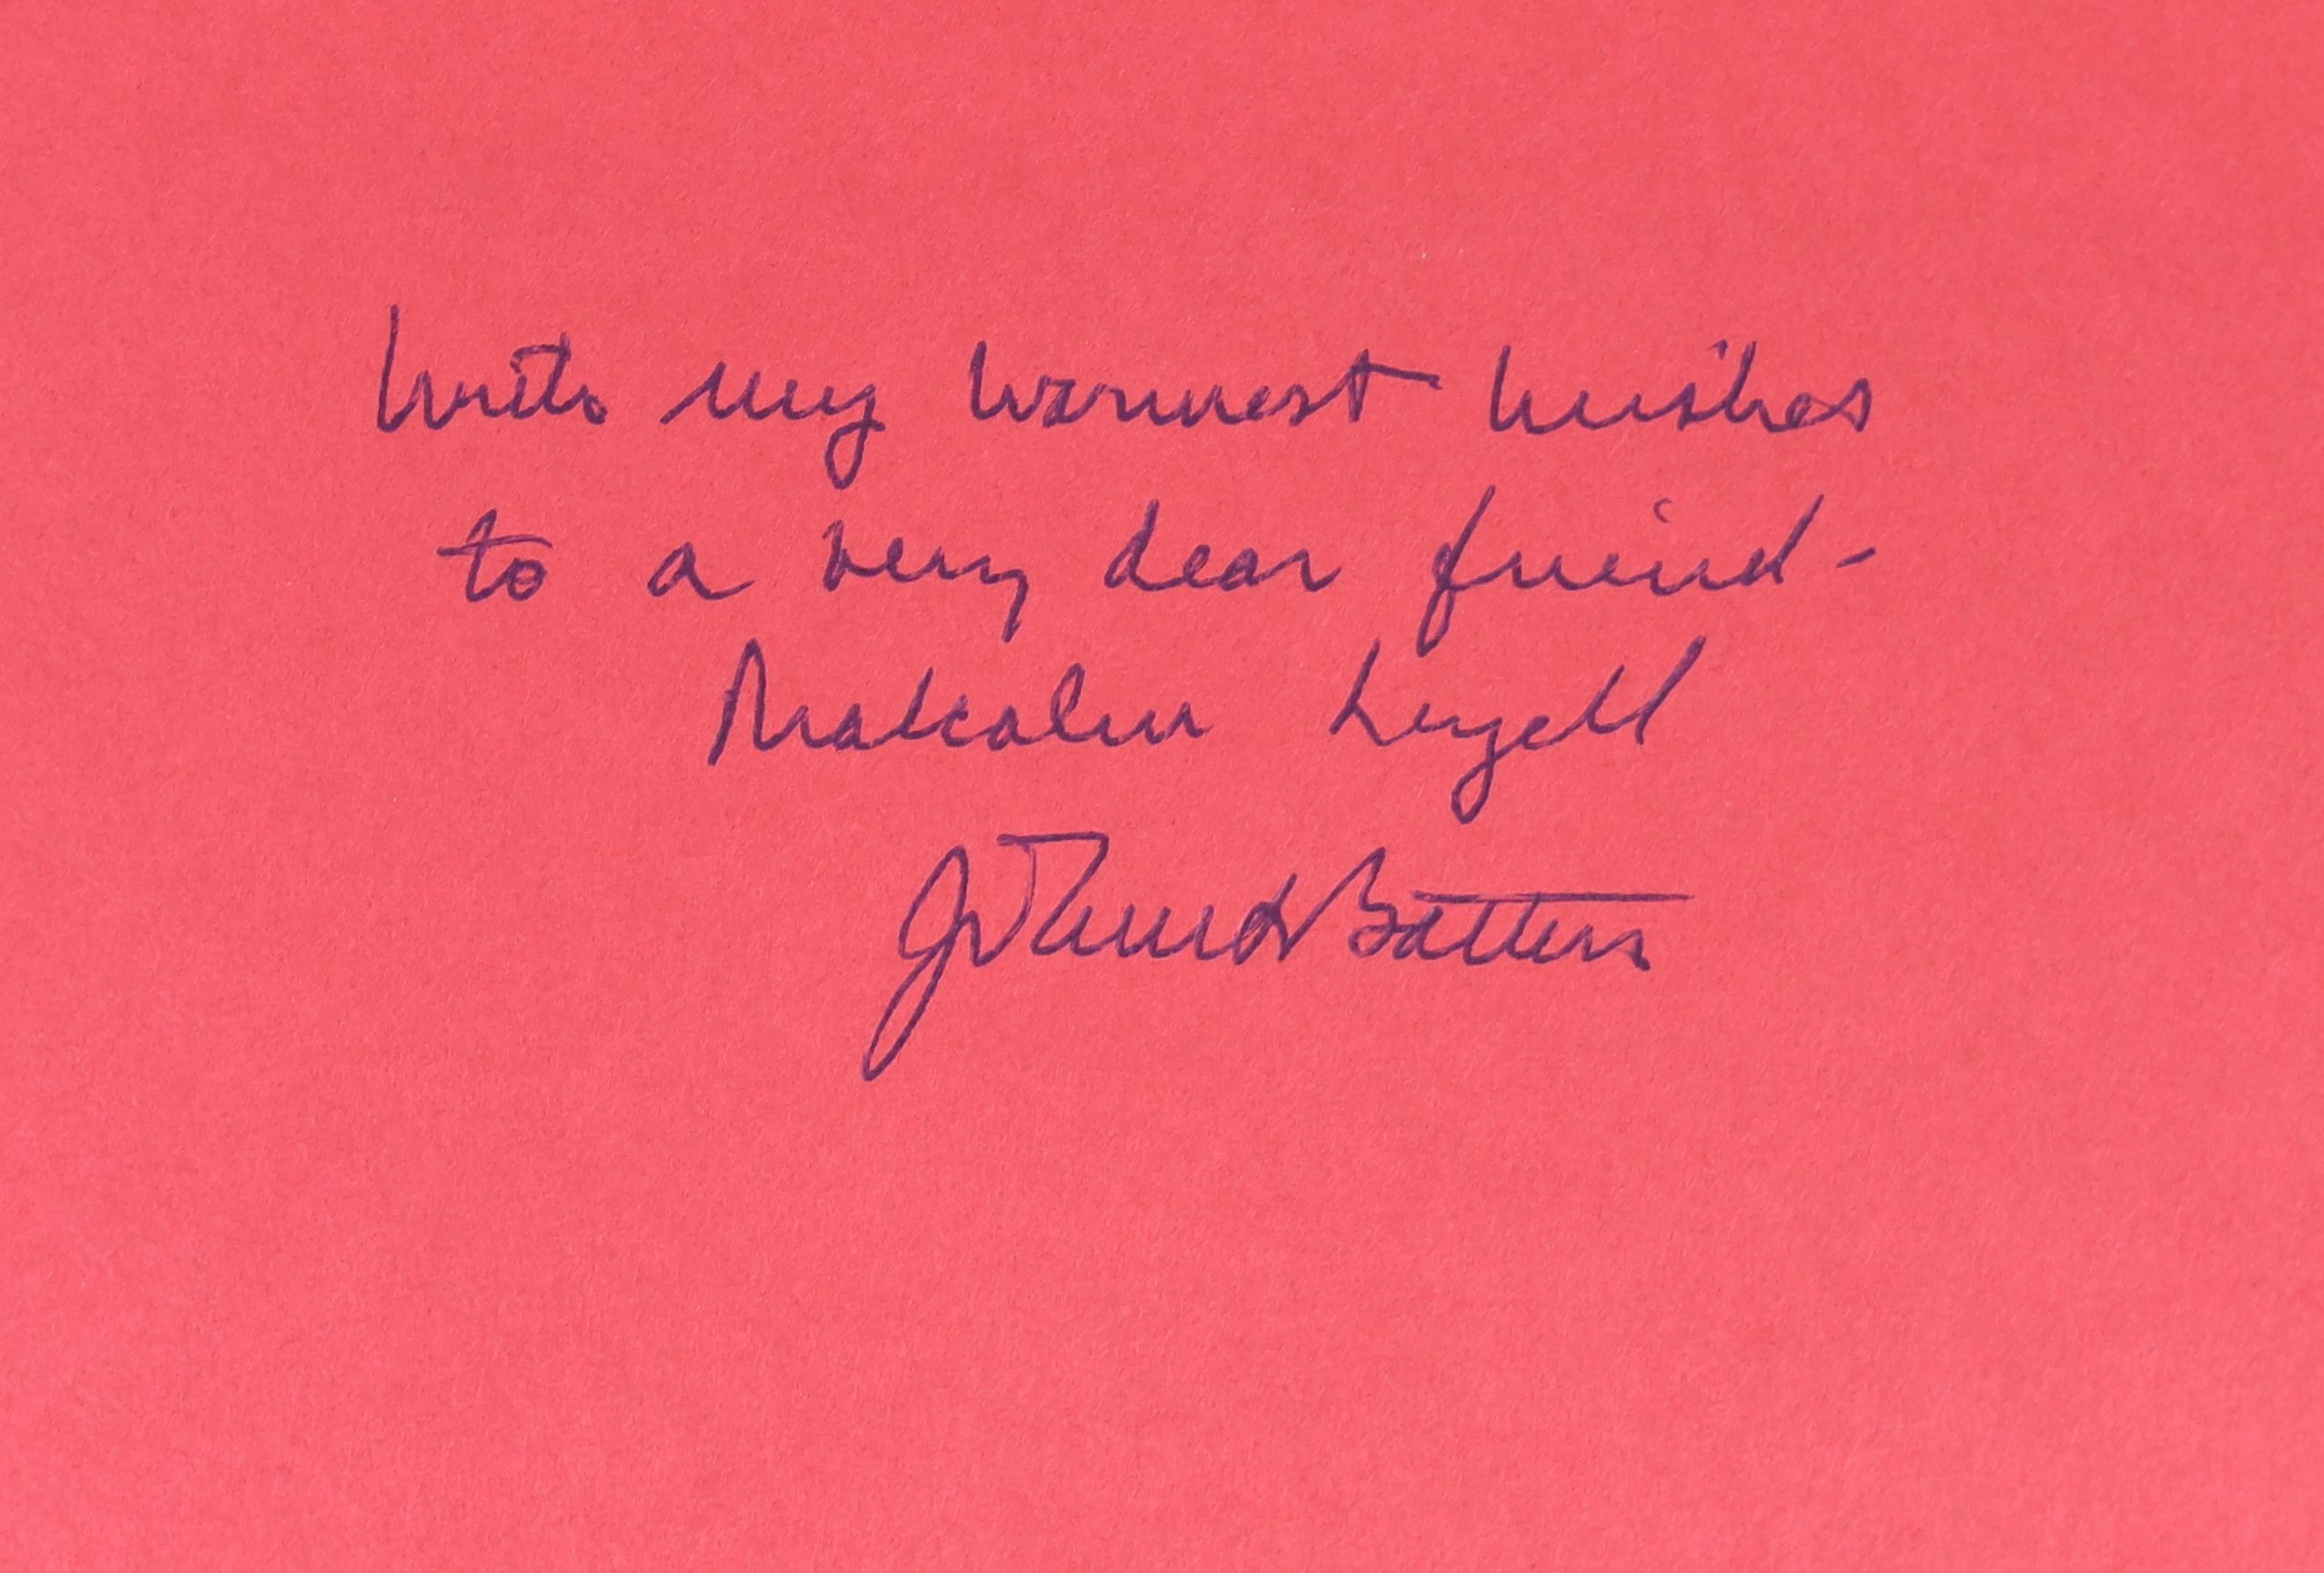 With my warmest wishes
to a very dear friend-
Malcolm Lyell
J. David Batten